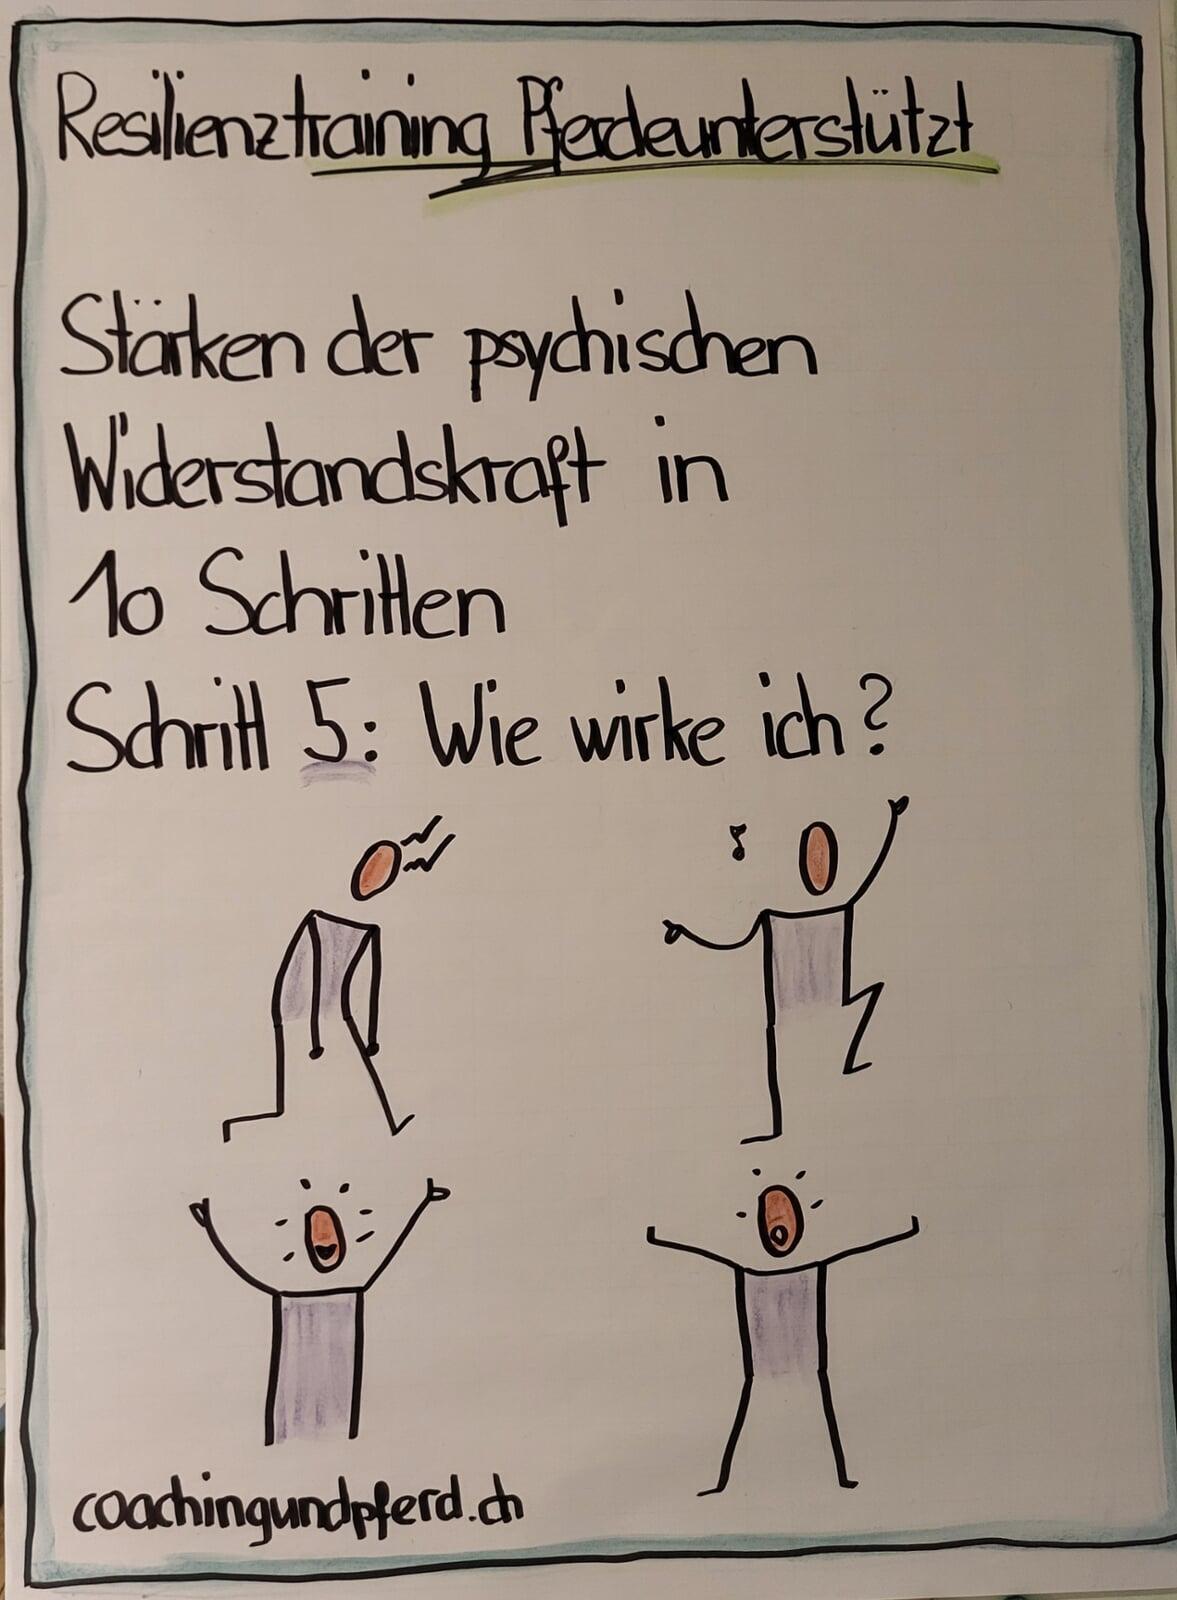 Resilienztraining Pferdeunterstützt
Stärken der psychischen
Widerstandskraft in
10 Schritten
Schritt 5: Wie wirke ich?
coachingundpferd.ch